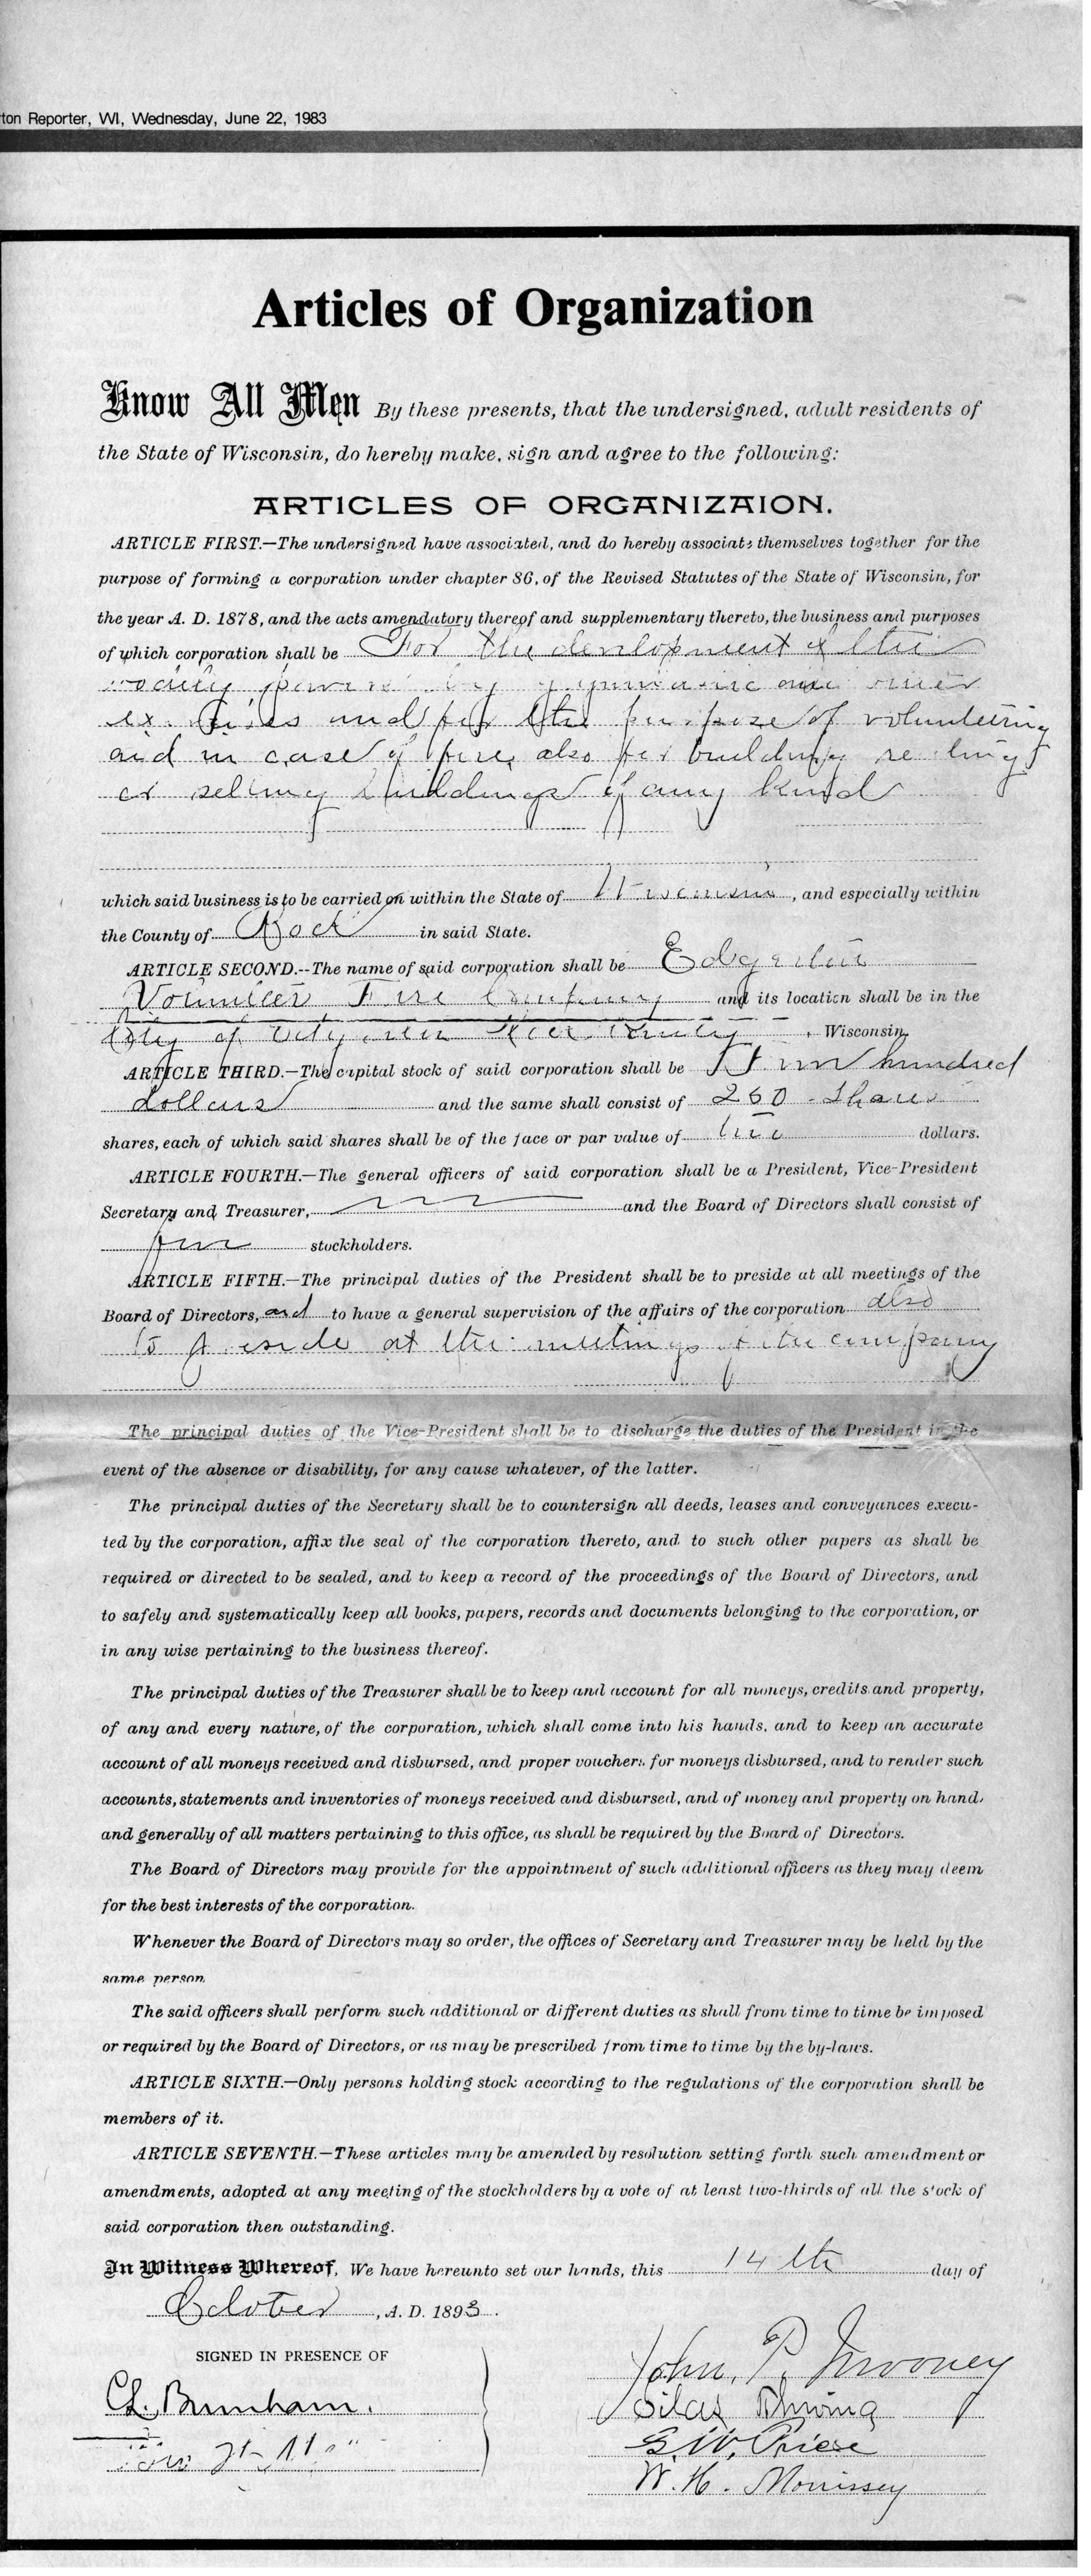 ton Reporter, WI, Wednesday, June 22, 1983
Articles of Organization
Know All Men By these presents, that the undersigned, adult residents of
the State of Wisconsin, do hereby make, sign and agree to the following:
ARTICLES OF ORGANIZAION.
ARTICLE FIRST.—The undersigned have associated, and do hereby associate themselves together for the
purpose of forming a corporation under chapter 86, of the Revised Statutes of the State of Wisconsin, for
the year A. D. 1878, and the acts amendatory thereof and supplementary thereto, the business and purposes
of which corporation shall be For the development of the
by
and for the purpose of volunteering
aid in case of fire, also for building
or selling buildings of any kind
which said business is to be carried on within the State of Wisconsin, and especially within
the County of Rock in said State.
ARTICLE SECOND.--The name of said corporation shall be Edgerton
Volunteer Fire Company and its location shall be in the
City of Edgerton Rock County, Wisconsin,
ARTICLE THIRD.—The capital stock of said corporation shall be Five hundred
dollars and the same shall consist of 250 Shares
shares, each of which said shares shall be of the face or par value of two dollars.
ARTICLE FOURTH.—The general officers of said corporation shall be a President, Vice-President
Secretary and Treasurer, and the Board of Directors shall consist of
stockholders.
ARTICLE FIFTH.—The principal duties of the President shall be to preside at all meetings of the
Board of Directors, and to have a general supervision of the affairs of the corporation also
to preside at the meetings of the company
The principal duties of the Vice-President shall be to discharge the duties of the President in the
event of the absence or disability, for any cause whatever, of the latter.
The principal duties of the Secretary shall be to countersign all deeds, leases and conveyances execu-
ted by the corporation, affix the seal of the corporation thereto, and to such other papers as shall be
required or directed to be sealed, and to keep a record of the proceedings of the Board of Directors, and
to safely and systematically keep all books, papers, records and documents belonging to the corporation, or
in any wise pertaining to the business thereof.
The principal duties of the Treasurer shall be to keep and account for all moneys, credits and property,
of any and every nature, of the corporation, which shall come into his hands, and to keep an accurate
account of all moneys received and disbursed, and proper vouchers for moneys disbursed, and to render such
accounts, statements and inventories of moneys received and disbursed, and of money and property on hand,
and generally of all matters pertaining to this office, as shall be required by the Board of Directors.
The Board of Directors may provide for the appointment of such additional officers as they may deem
for the best interests of the corporation.
Whenever the Board of Directors may so order, the offices of Secretary and Treasurer may be held by the
same person.
The said officers shall perform such additional or different duties as shall from time to time be imposed
or required by the Board of Directors, or as may be prescribed from time to time by the by-laws.
ARTICLE SIXTH.—Only persons holding stock according to the regulations of the corporation shall be
members of it.
ARTICLE SEVENTH.—These articles may be amended by resolution setting forth such amendment or
amendments, adopted at any meeting of the stockholders by a vote of at least two-thirds of all the stock of
said corporation then outstanding.
In Witness Whereof, We have hereunto set our hands, this 14th day of
October, A. D. 1893.
SIGNED IN PRESENCE OF
John. P. Mooney
Burnham.
Silas
G. W.
W. H. Morrissey